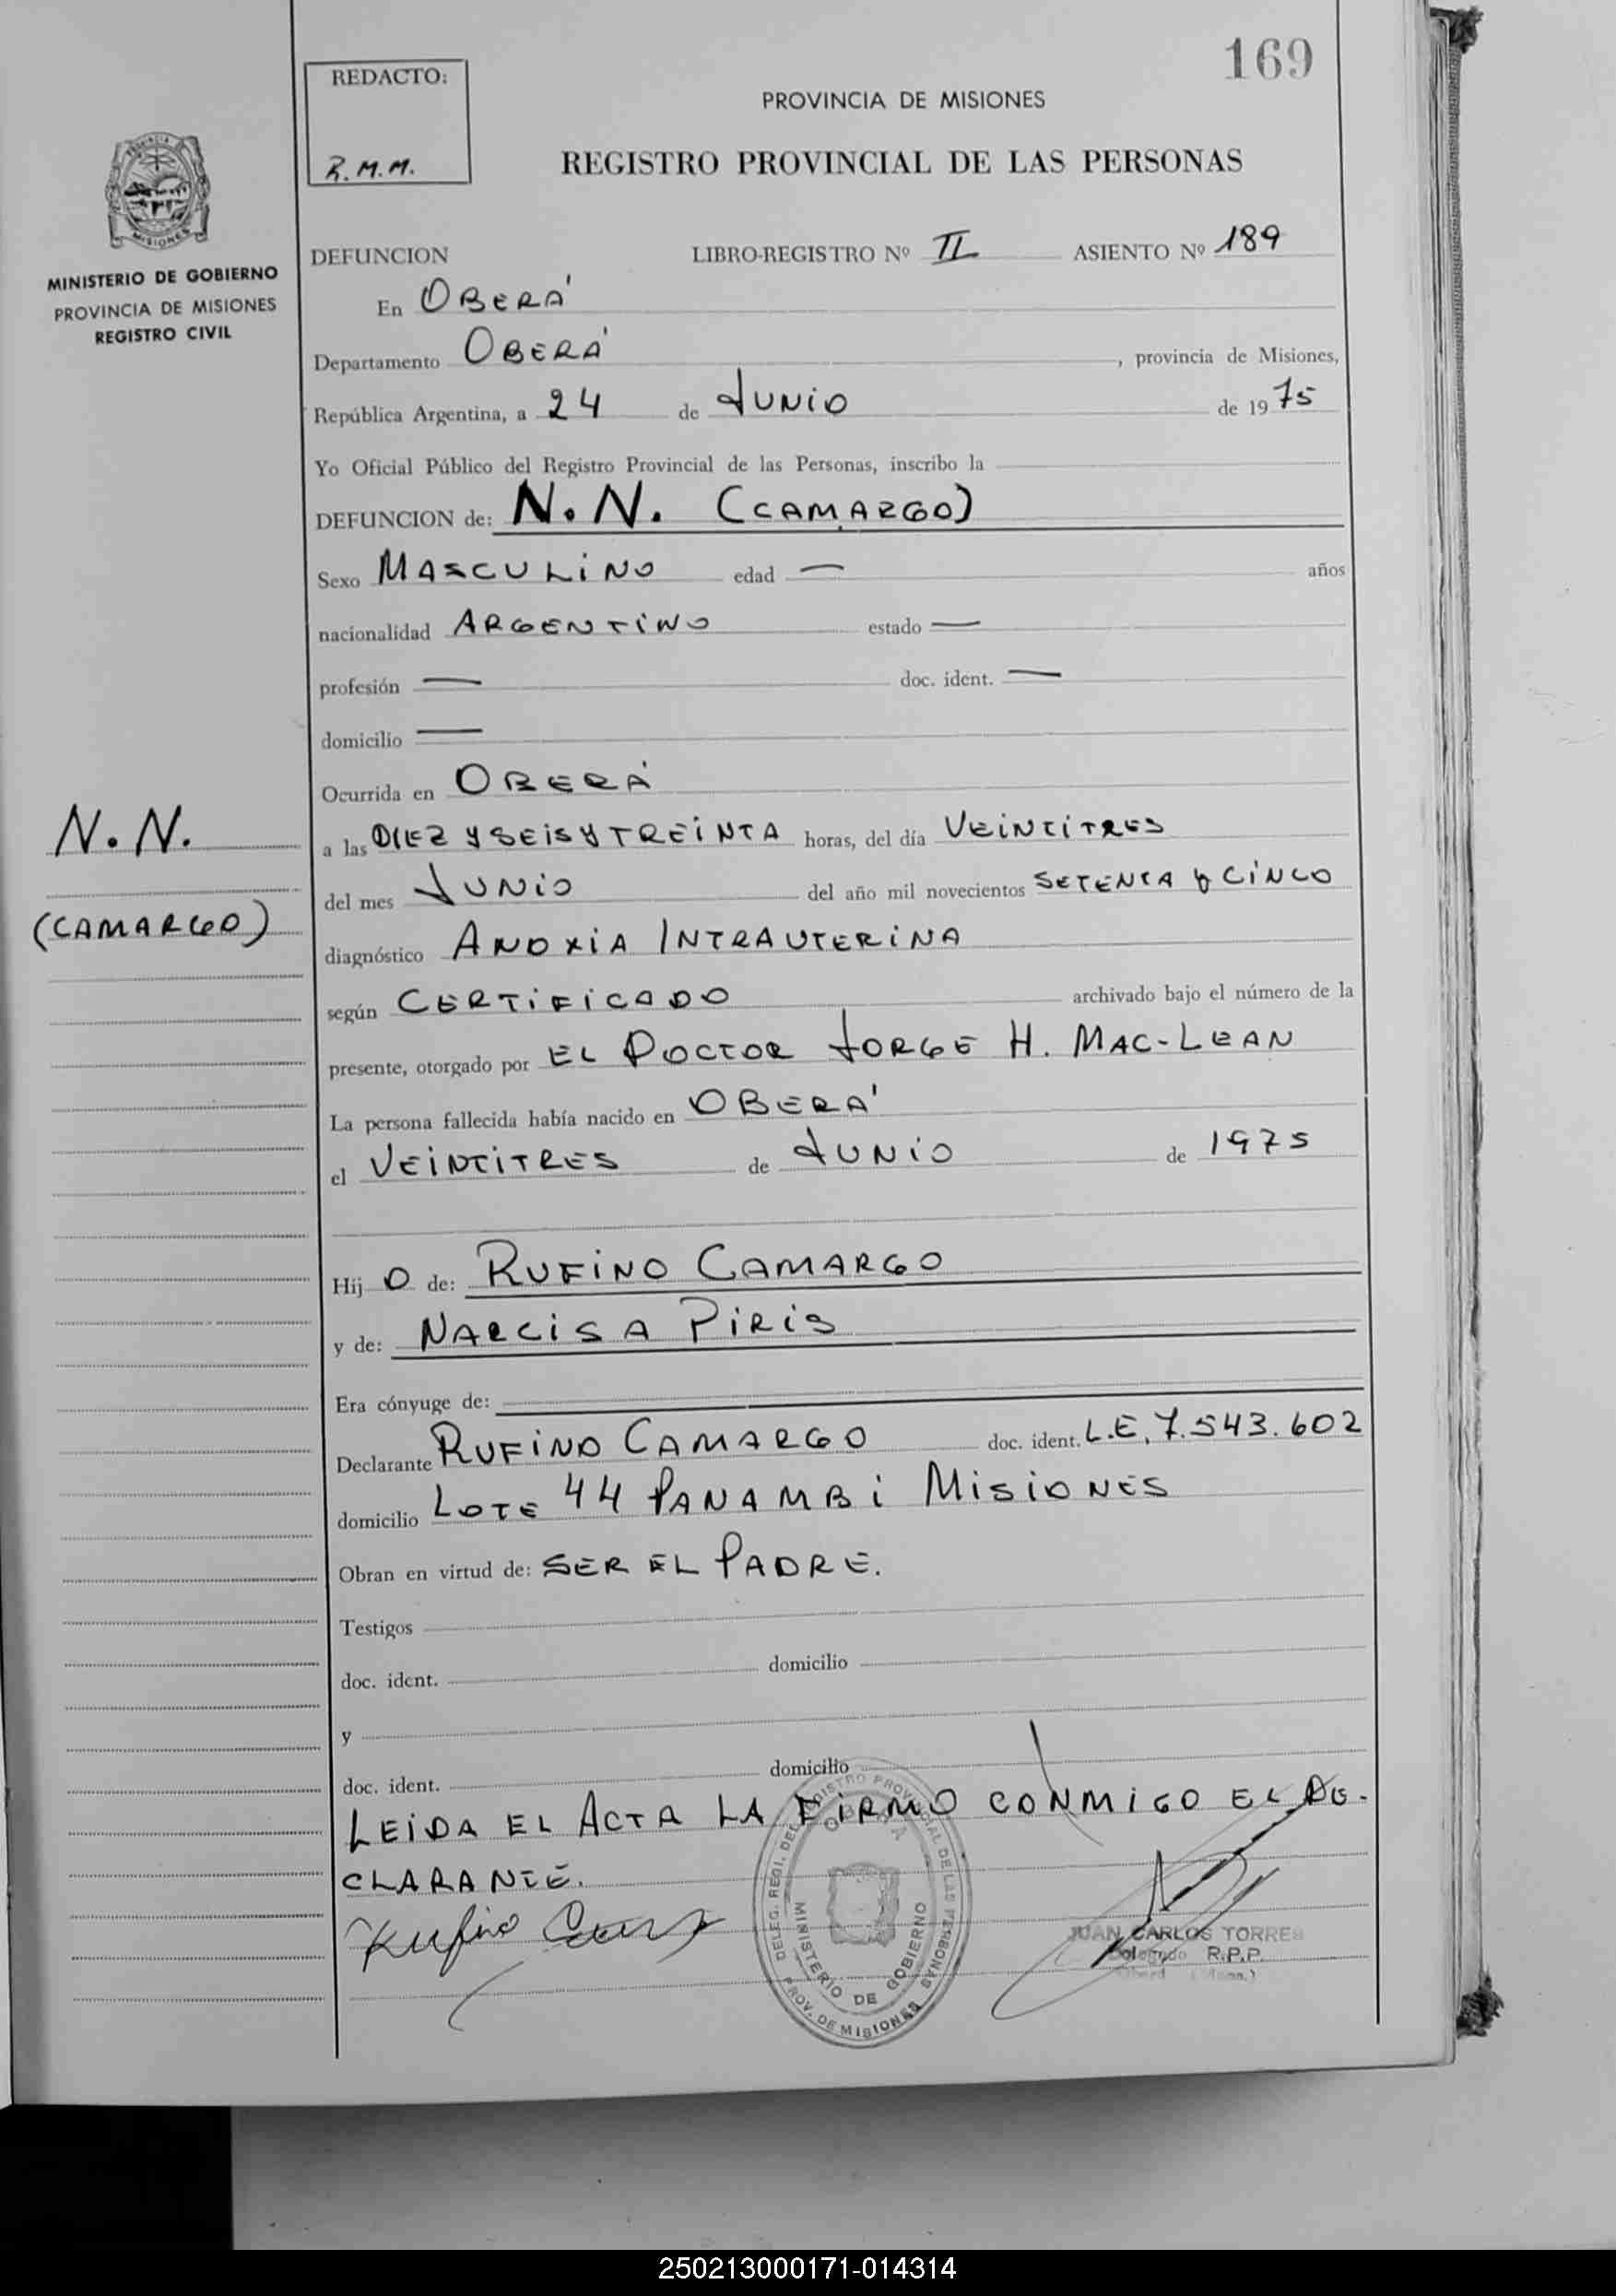 169
REDACTO:
R.M.M.
PROVINCIA DE MISIONES
REGISTRO PROVINCIAL DE LAS PERSONAS
MINISTERIO DE GOBIERNO
PROVINCIA DE MISIONES
REGISTRO CIVIL
DEFUNCION LIBRO-REGISTRO Nº II ASIENTO Nº 189
En OBERÁ
Departamento OBERÁ, provincia de Misiones,
República Argentina, a 24 de JUNIO de 1975
Yo Oficial Público del Registro Provincial de las Personas, inscribo la
DEFUNCION de: N.N. (CAMARGO)
Sexo MASCULINO edad — años
nacionalidad ARGENTINO estado —
profesión — doc. ident. —
domicilio —
Ocurrida en OBERÁ
N.N.
(CAMARGO)
a las DIEZ Y SEIS Y TREINTA horas, del día VEINTITRES
del mes JUNIO del año mil novecientos SETENTA Y CINCO
diagnóstico ANOXIA INTRAUTERINA
según CERTIFICADO archivado bajo el número de la
presente, otorgado por EL DOCTOR JORGE H. MAC-LEAN
La persona fallecida había nacido en OBERÁ
el VEINTITRES de JUNIO de 1975
Hijo de: RUFINO CAMARGO
y de: NARCISA PIRIS
Era cónyuge de:
Declarante RUFINO CAMARGO doc. ident. L.E. 7.543.602
domicilio LOTE 44 PANAMBI MISIONES
Obran en virtud de: SER EL PADRE.
Testigos
doc. ident. domicilio
y
doc. ident. domicilio
LEIDA EL ACTA LA FIRMO CONMIGO EL DE-
CLARANTE.
Rufino
DELEG. REGI. DEL REGISTRO PROVINCIAL DE LAS PERSONAS
OBERA
MINISTERIO DE GOBIERNO
PROV. DE MISIONES
JUAN CARLOS TORRES
Delegado R.P.P.
250213000171-014314